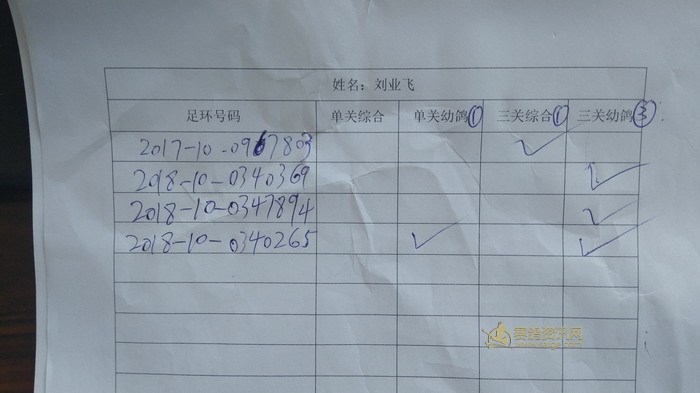 姓名：刘业飞
足环号码 单关综合 单关幼鸽① 三关综合① 三关幼鸽③
2017-10-0967803 ✓
2018-10-0340369 ✓
2018-10-0347894 ✓
2018-10-0340265 ✓ ✓
赛鸽资讯网